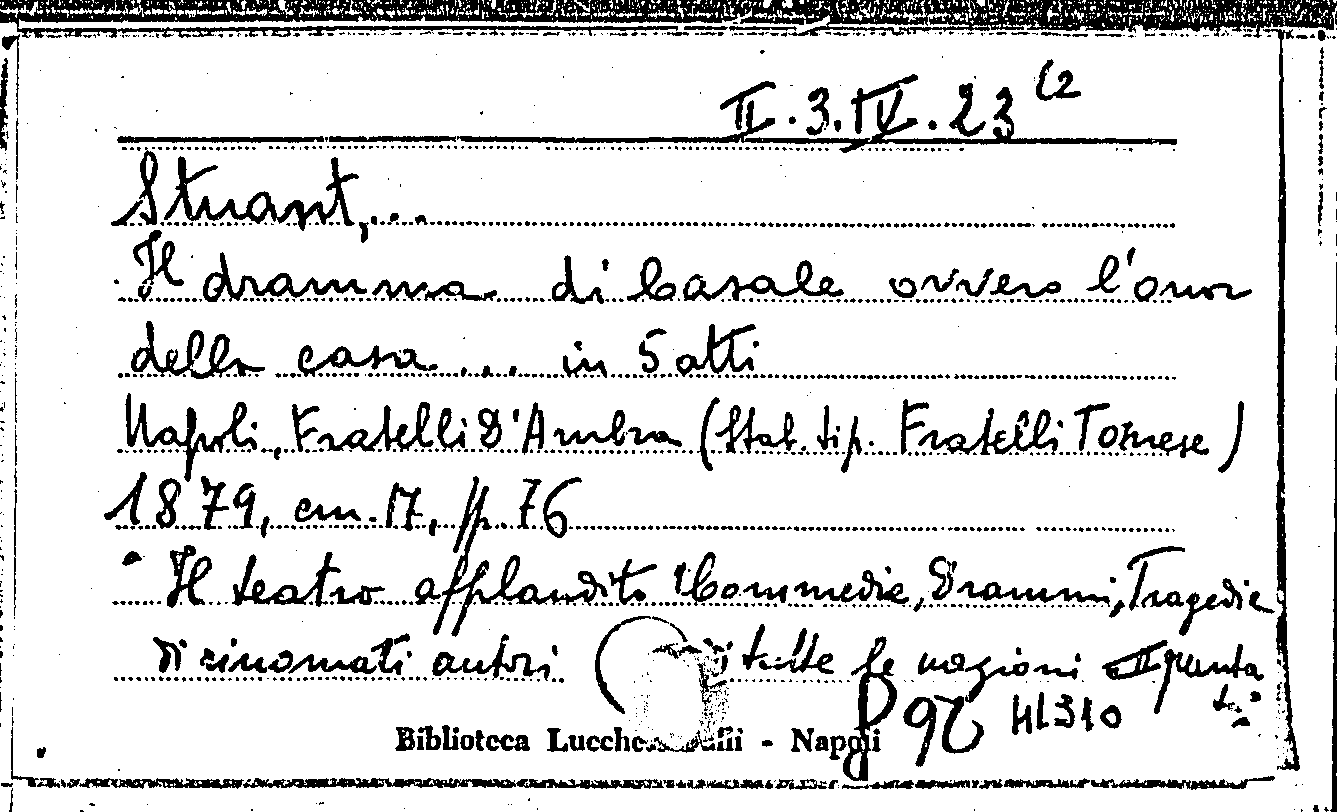 II.3.IV.23 (2
Stuart,...
Il dramma di Casale ovvero l'onor
della casa... in 5 atti
Napoli, Fratelli D'Ambra (Stab. tip. Fratelli Tornese)
1879, cm. 17, pp. 76
" Il teatro applaudito "Commedie, Drammi, Tragedie
di rinomati autori di tutte le nazioni II punta
ta"
Biblioteca Lucchesi Palli - Napoli